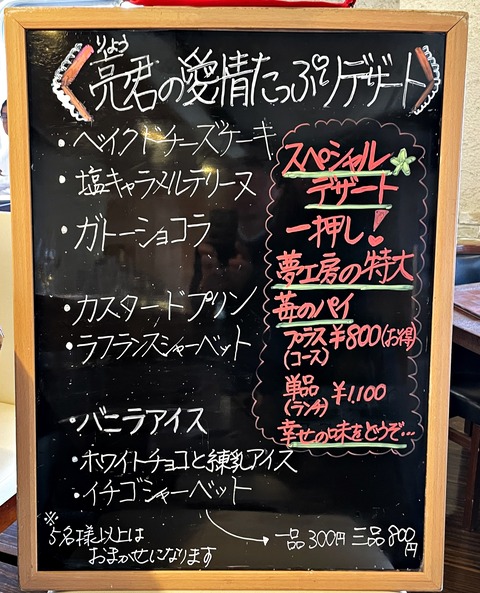 りょう
亮君の愛情たっぷりデザート
・ベイクドチーズケーキ
・塩キャラメルテリーヌ
・ガトーショコラ
・カスタードプリン
・ラフランスシャーベット
・バニラアイス
・ホワイトチョコと練乳アイス
・イチゴシャーベット
一品300円 三品800円
※5名様以上は
おまかせになります
スペシャル
デザート
一押し!
夢工房の特大
苺のパイ
プラス¥800(お得)
(コース)
単品 ¥1,100
(ランチ)
幸せの味をどうぞ…